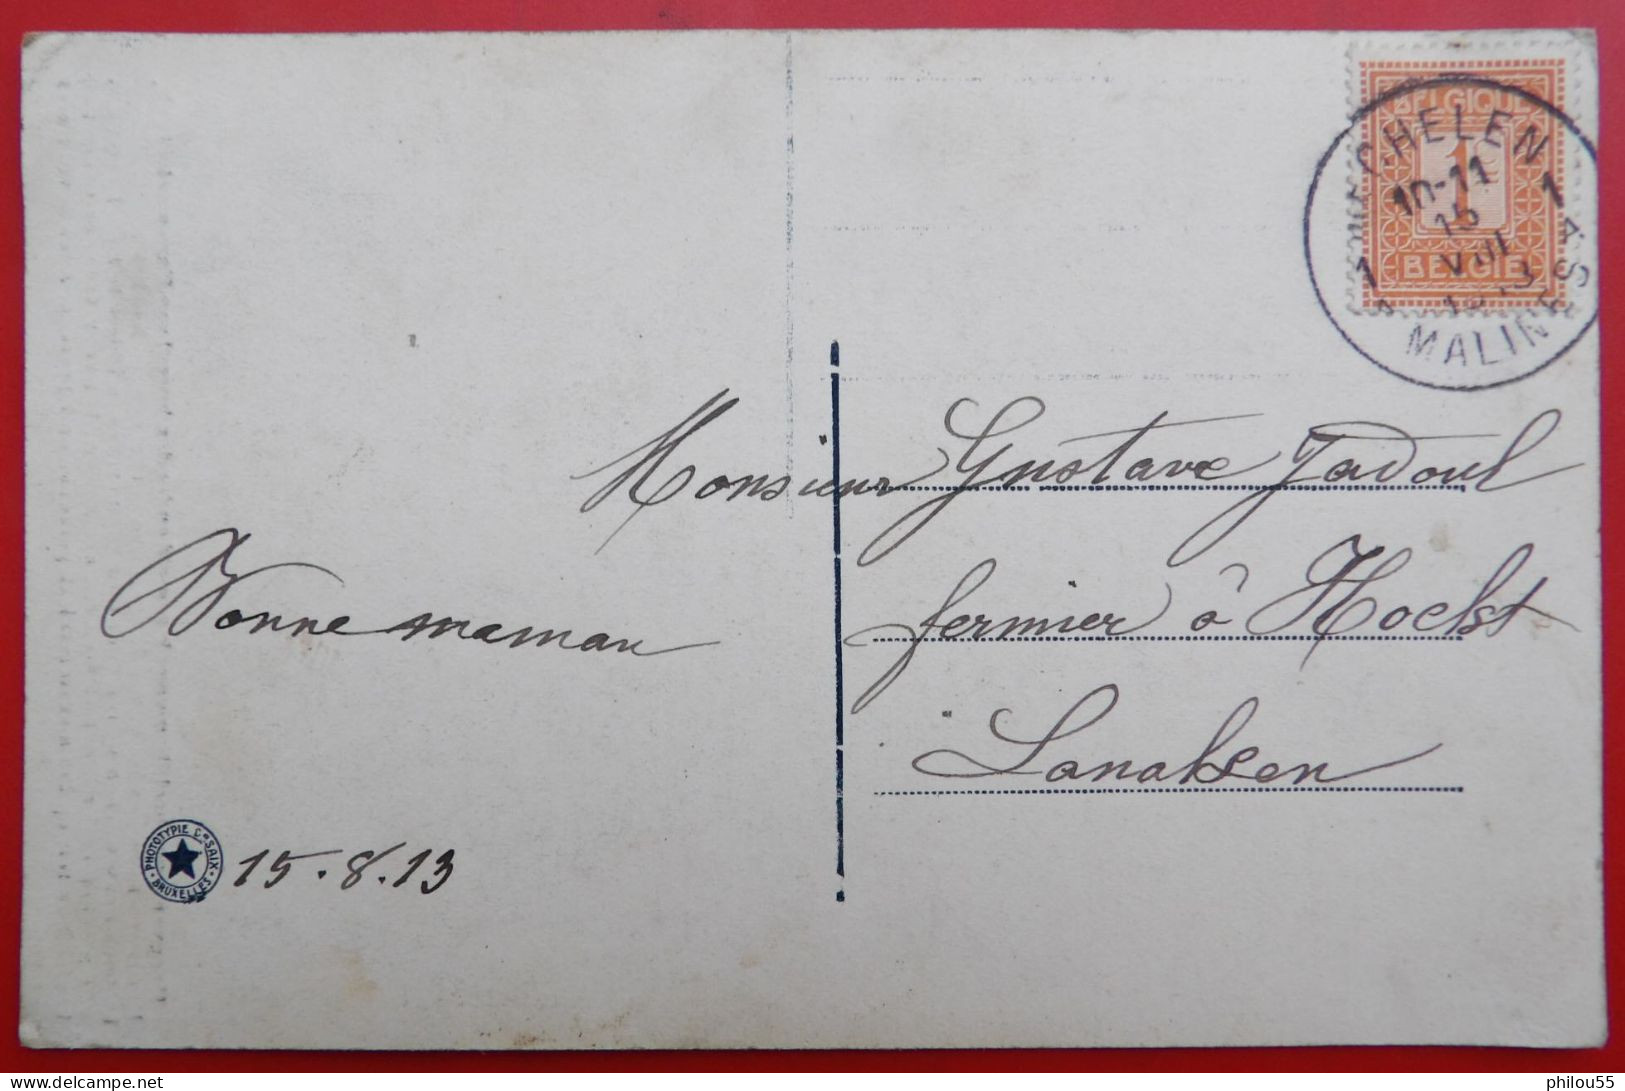 BELGIQUE
1
BELGIE
CHELEN
10-11
15
VIII
1 1
A MALINES A
Monsieur Gustave Jadoul
fermier à Hoelst
Lanaken
Bonne maman
PHOTOTYPIE DESAIX
BRUXELLES
15.8.13
philou55